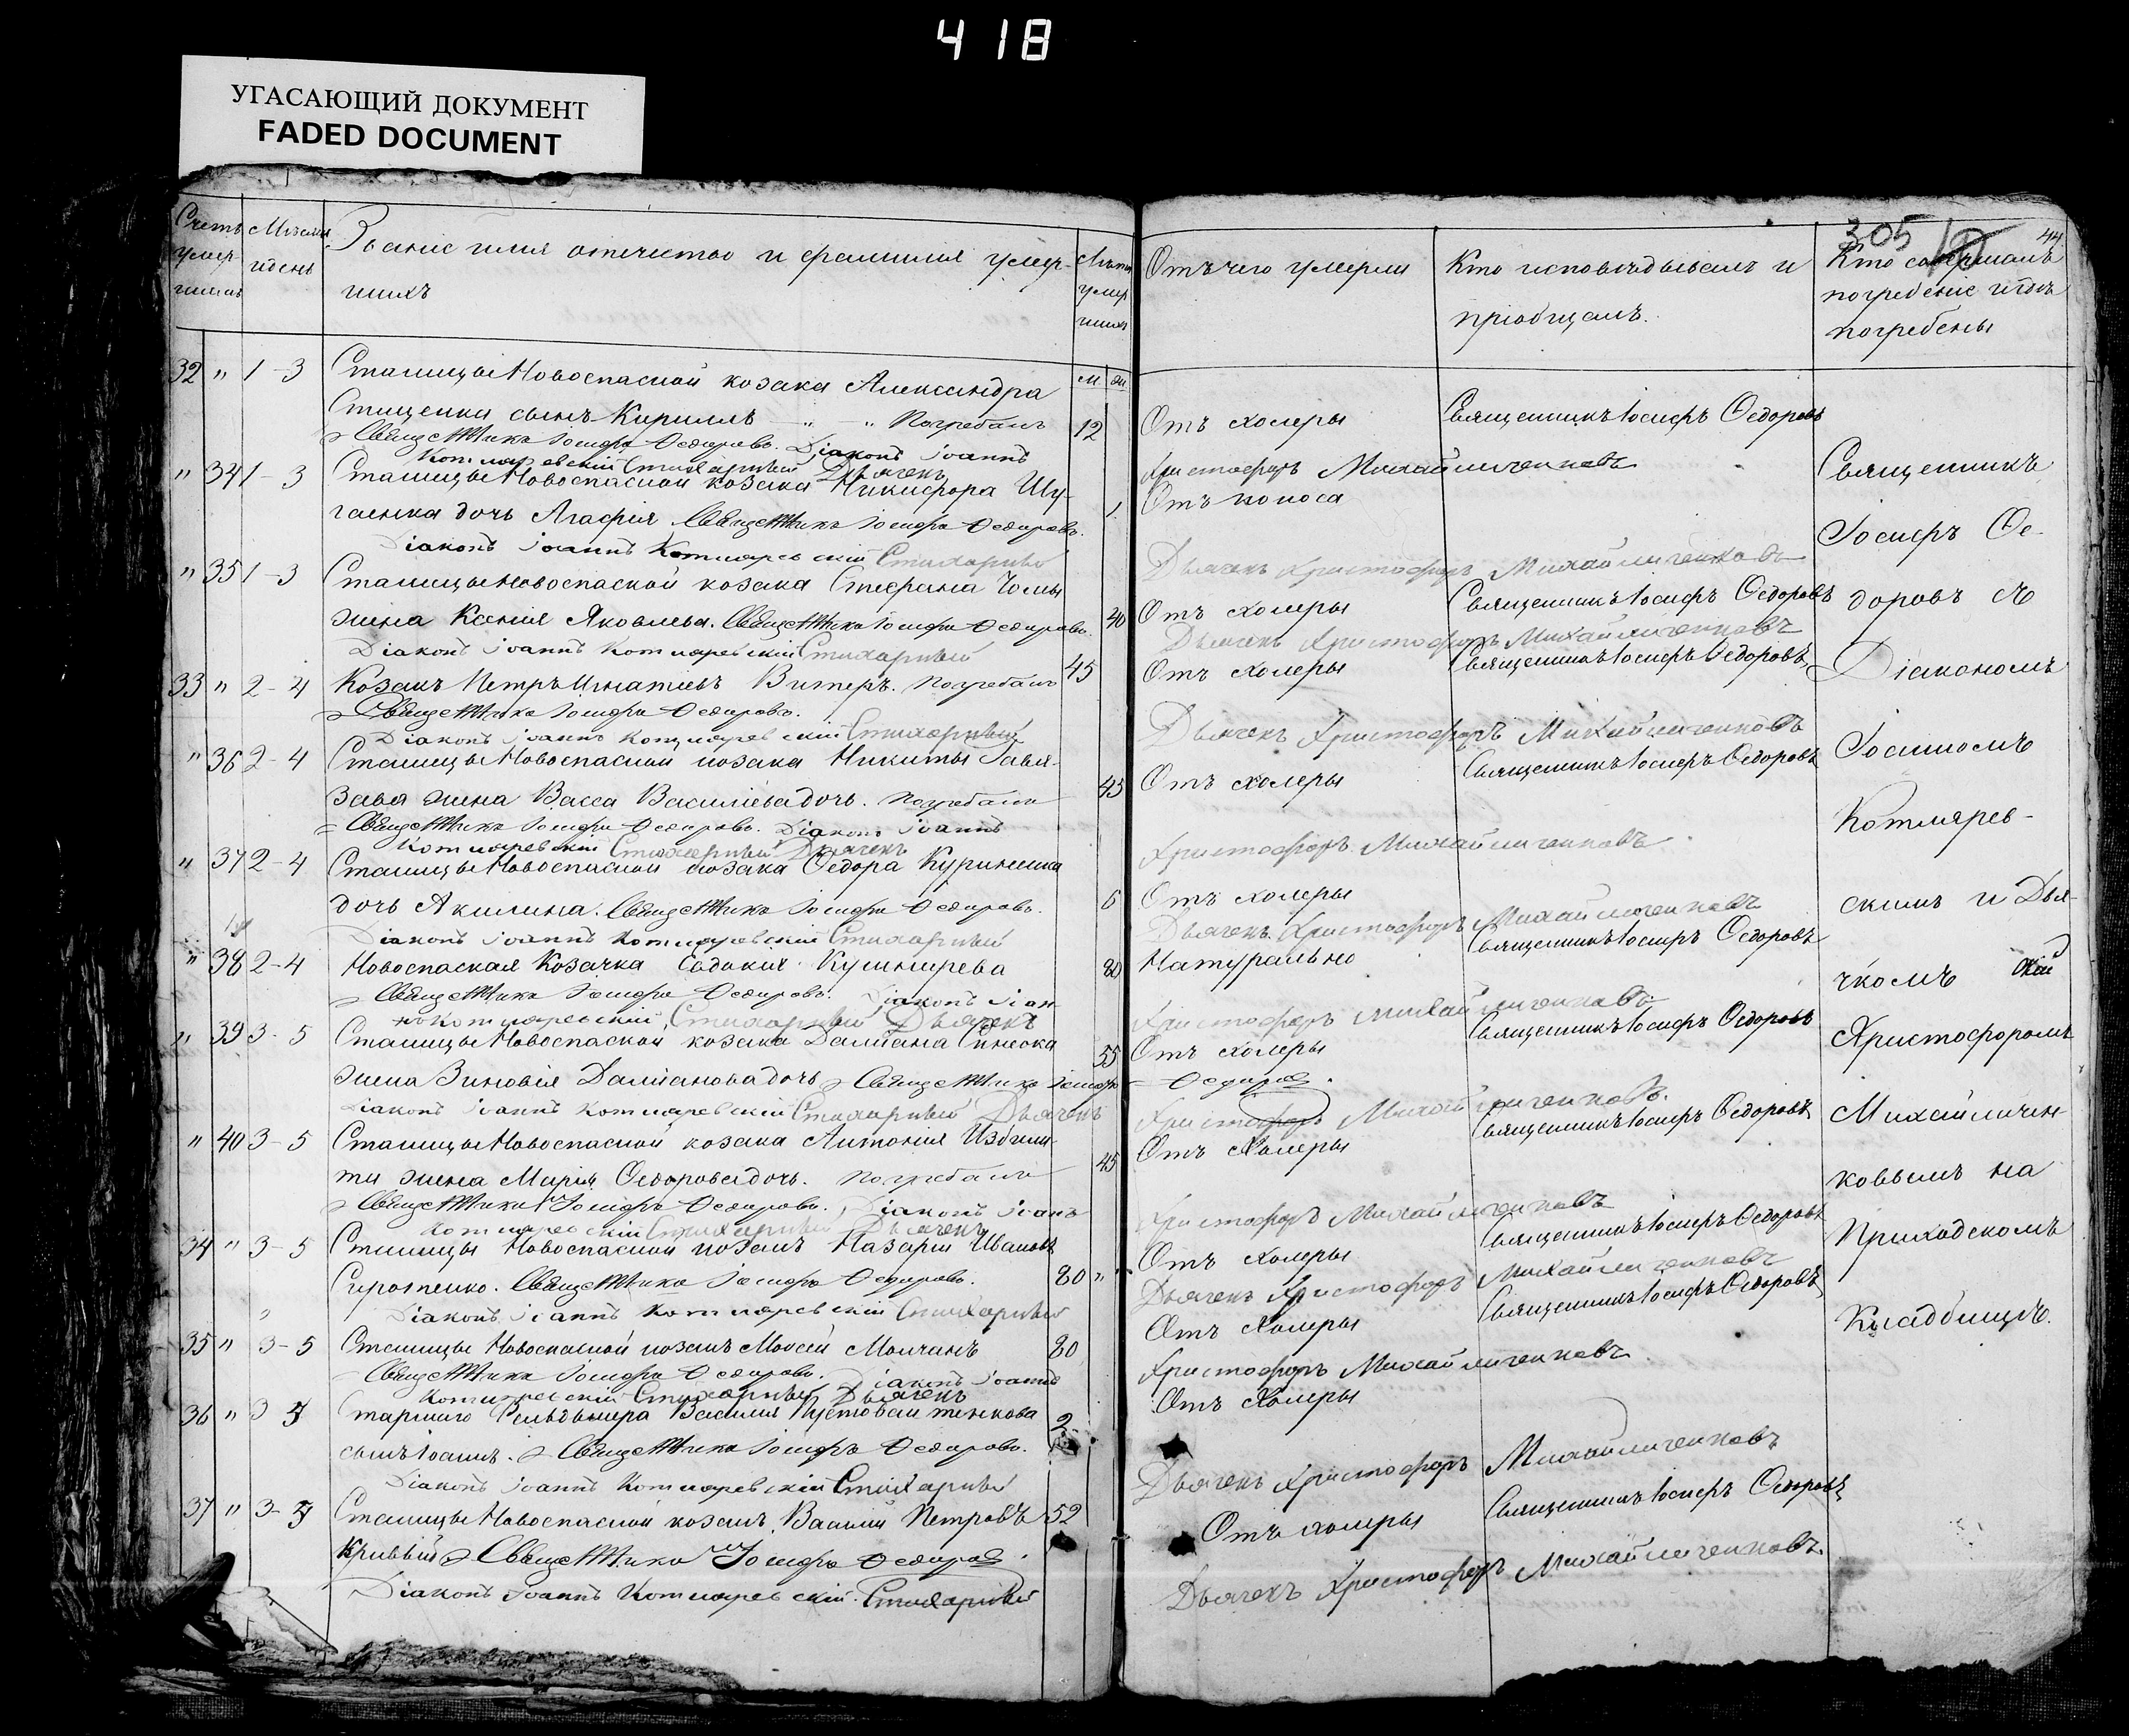 418
УГАСАЮЩИЙ ДОКУМЕНТ
FADED DOCUMENT
305 44
Счетъ умер- шихъ
Мѣсяцъ и день
Званіе имя отечество и фамилія умер-
шихъ
Лѣта умер шихъ
Отъ чего умерли
Кто исповѣдывалъ и
пріобщалъ.
Кто совершалъ
погребеніе и гдѣ
погребены
м дн
32 " 1-3 Станицы Новоспаской козака Александра
Стиценка сынъ Кириллъ " " Погребалъ 12 Отъ холеры Священникъ Іосифъ Ѳедоровъ
Священникъ Іосифъ Ѳедоровъ. Діаконъ Іоаннъ
Котляревскій Стихарный Дьячекъ Христофоръ Михайличенковъ
" 34 1-3 Станицы Новоспаской козака Никифора Шу-
гаенка дочь Агафія. Священникъ Іосифъ Ѳедоровъ. 1 Отъ поноса
Діаконъ Іоаннъ Котляревскій Стихарный Дьячекъ Христофоръ Михайличенковъ
" 35 1-3 Станицы Новоспаской козака Стефана
жена Ксенія Яковлева. Священникъ Іосифъ Ѳедоровъ. 40 Отъ холеры Священникъ Іосифъ Ѳедоровъ
Діаконъ Іоаннъ Котляревскій Стихарный Дьячекъ Христофоръ Михайличенковъ
33 " 2-4 Козакъ Петръ Игнатьевъ Витеръ. Погребалъ 45 Отъ холеры Священникъ Іосифъ Ѳедоровъ
Священникъ Іосифъ Ѳедоровъ.
Діаконъ Іоаннъ Котляревскій Стихарный Дьячекъ Христофоръ Михайличенковъ
" 36 2-4 Станицы Новоспаской козака Никиты
жена Васса Василіева дочь. Погребалъ 45 Отъ холеры Священникъ Іосифъ Ѳедоровъ
Священникъ Іосифъ Ѳедоровъ. Діаконъ Іоаннъ
Котляревскій Стихарный Дьячекъ Христофоръ Михайличенковъ
" 37 2-4 Станицы Новоспаской козака Ѳедора
дочь Акилина. Священникъ Іосифъ Ѳедоровъ. 6 Отъ холеры
Діаконъ Іоаннъ Котляревскій Стихарный Дьячекъ Христофоръ Михайличенковъ
" 38 2-4 Новоспаская Козачка Евдокия Кушнирева 80 Натурально Священникъ Іосифъ Ѳедоровъ
Священникъ Іосифъ Ѳедоровъ. Діаконъ Іоан
нъ Котляревскій, Стихарный Дьячекъ Христофоръ Михайличенковъ
" 39 3-5 Станицы Новоспаской козака Даміана
жена Зиновія Даміанова дочь Священникъ Іосифъ Ѳедоровъ. 55 Отъ холеры Священникъ Іосифъ Ѳедоровъ
Діаконъ Іоаннъ Котляревскій Стихарный Дьячекъ Христофоръ Михайличенковъ.
" 40 3-5 Станицы Новоспаской козака Антонія
жена Марія Ѳедорова дочь. Погребалъ 45 Отъ Холеры Священникъ Іосифъ Ѳедоровъ
Священникъ Іосифъ Ѳедоровъ. Діаконъ Іоанъ
Котляревскій Стихарный Дьячекъ Христофоръ Михайличенковъ
34 " 3-5 Станицы Новоспаской козакъ Назарій Ивановъ
Сиротенко. Священникъ Іосифъ Ѳедоровъ. 80 " Отъ Холеры Священникъ Іосифъ Ѳедоровъ
Діаконъ Іоаннъ Котляревскій Стихарный Дьячекъ Христофоръ Михайличенковъ
35 " 3-5 Станицы Новоспаской козакъ Моисей Молчанъ 80 Отъ Холеры Священникъ Іосифъ Ѳедоровъ
Священникъ Іосифъ Ѳедоровъ. Діаконъ Іоаннъ
Котляревскій Стихарный Дьячекъ Христофоръ Михайличенковъ
36 " 3 5 Старшаго Фельдшера Василія
сынъ Іоаннъ. Священникъ Іосифъ Ѳедоровъ. 2 Отъ Холеры
Діаконъ Іоаннъ Котляревскій Стихарный Дьячекъ Христофоръ Михайличенковъ
37 " 3-5 Станицы Новоспаской козакъ Василій Петровъ 52 Отъ холеры Священникъ Іосифъ Ѳедоровъ
Кривый Священникъ Іосифъ Ѳедоровъ.
Діаконъ Іоаннъ Котляревскій. Стихарный Дьячекъ Христофоръ Михайличенковъ.
Священникъ
Іосифъ Ѳе-
доровъ съ
Діакономъ
Іоанномъ
Котлярев-
скимъ и Дья-
чкомъ
Христофоромъ
Михайличен-
ковымъ на
Приходскомъ
Кладбищѣ.